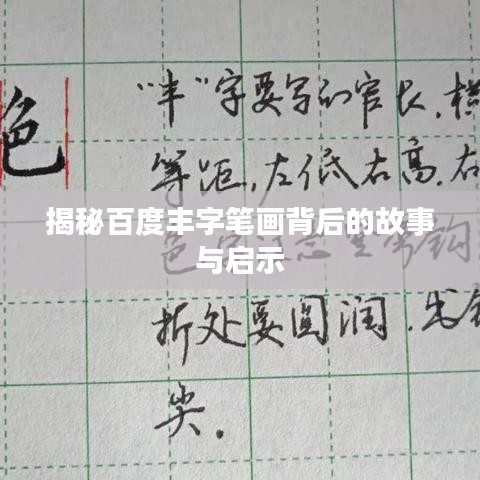 色
"丰"字要写的窄长,横
等距,左低右高.右
揭秘百度丰字笔画背后的故事
与启示
色 钩
折处要圆润.出
尖.